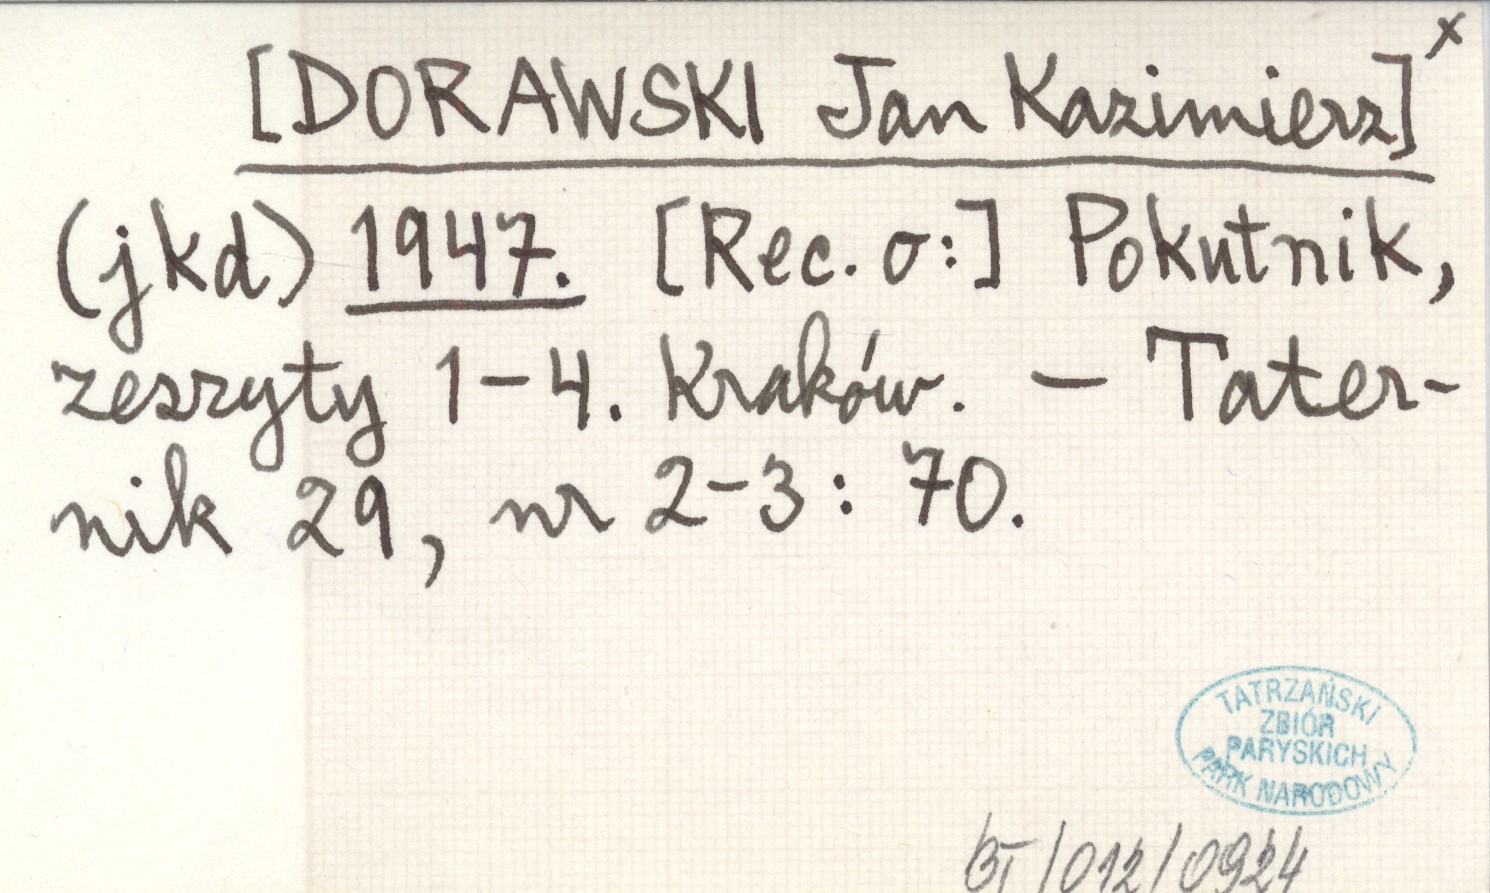 [DORAWSKI Jan Kazimierz]x
(jkd) 1947. [Rec. o:] Pokutnik,
zeszyty 1-4. Kraków. - Tater-
nik 29, nr 2-3: 70.
TATRZAŃSKI
ZBIÓR
PARYSKICH
PARK NARODOWY
BT/012/0924